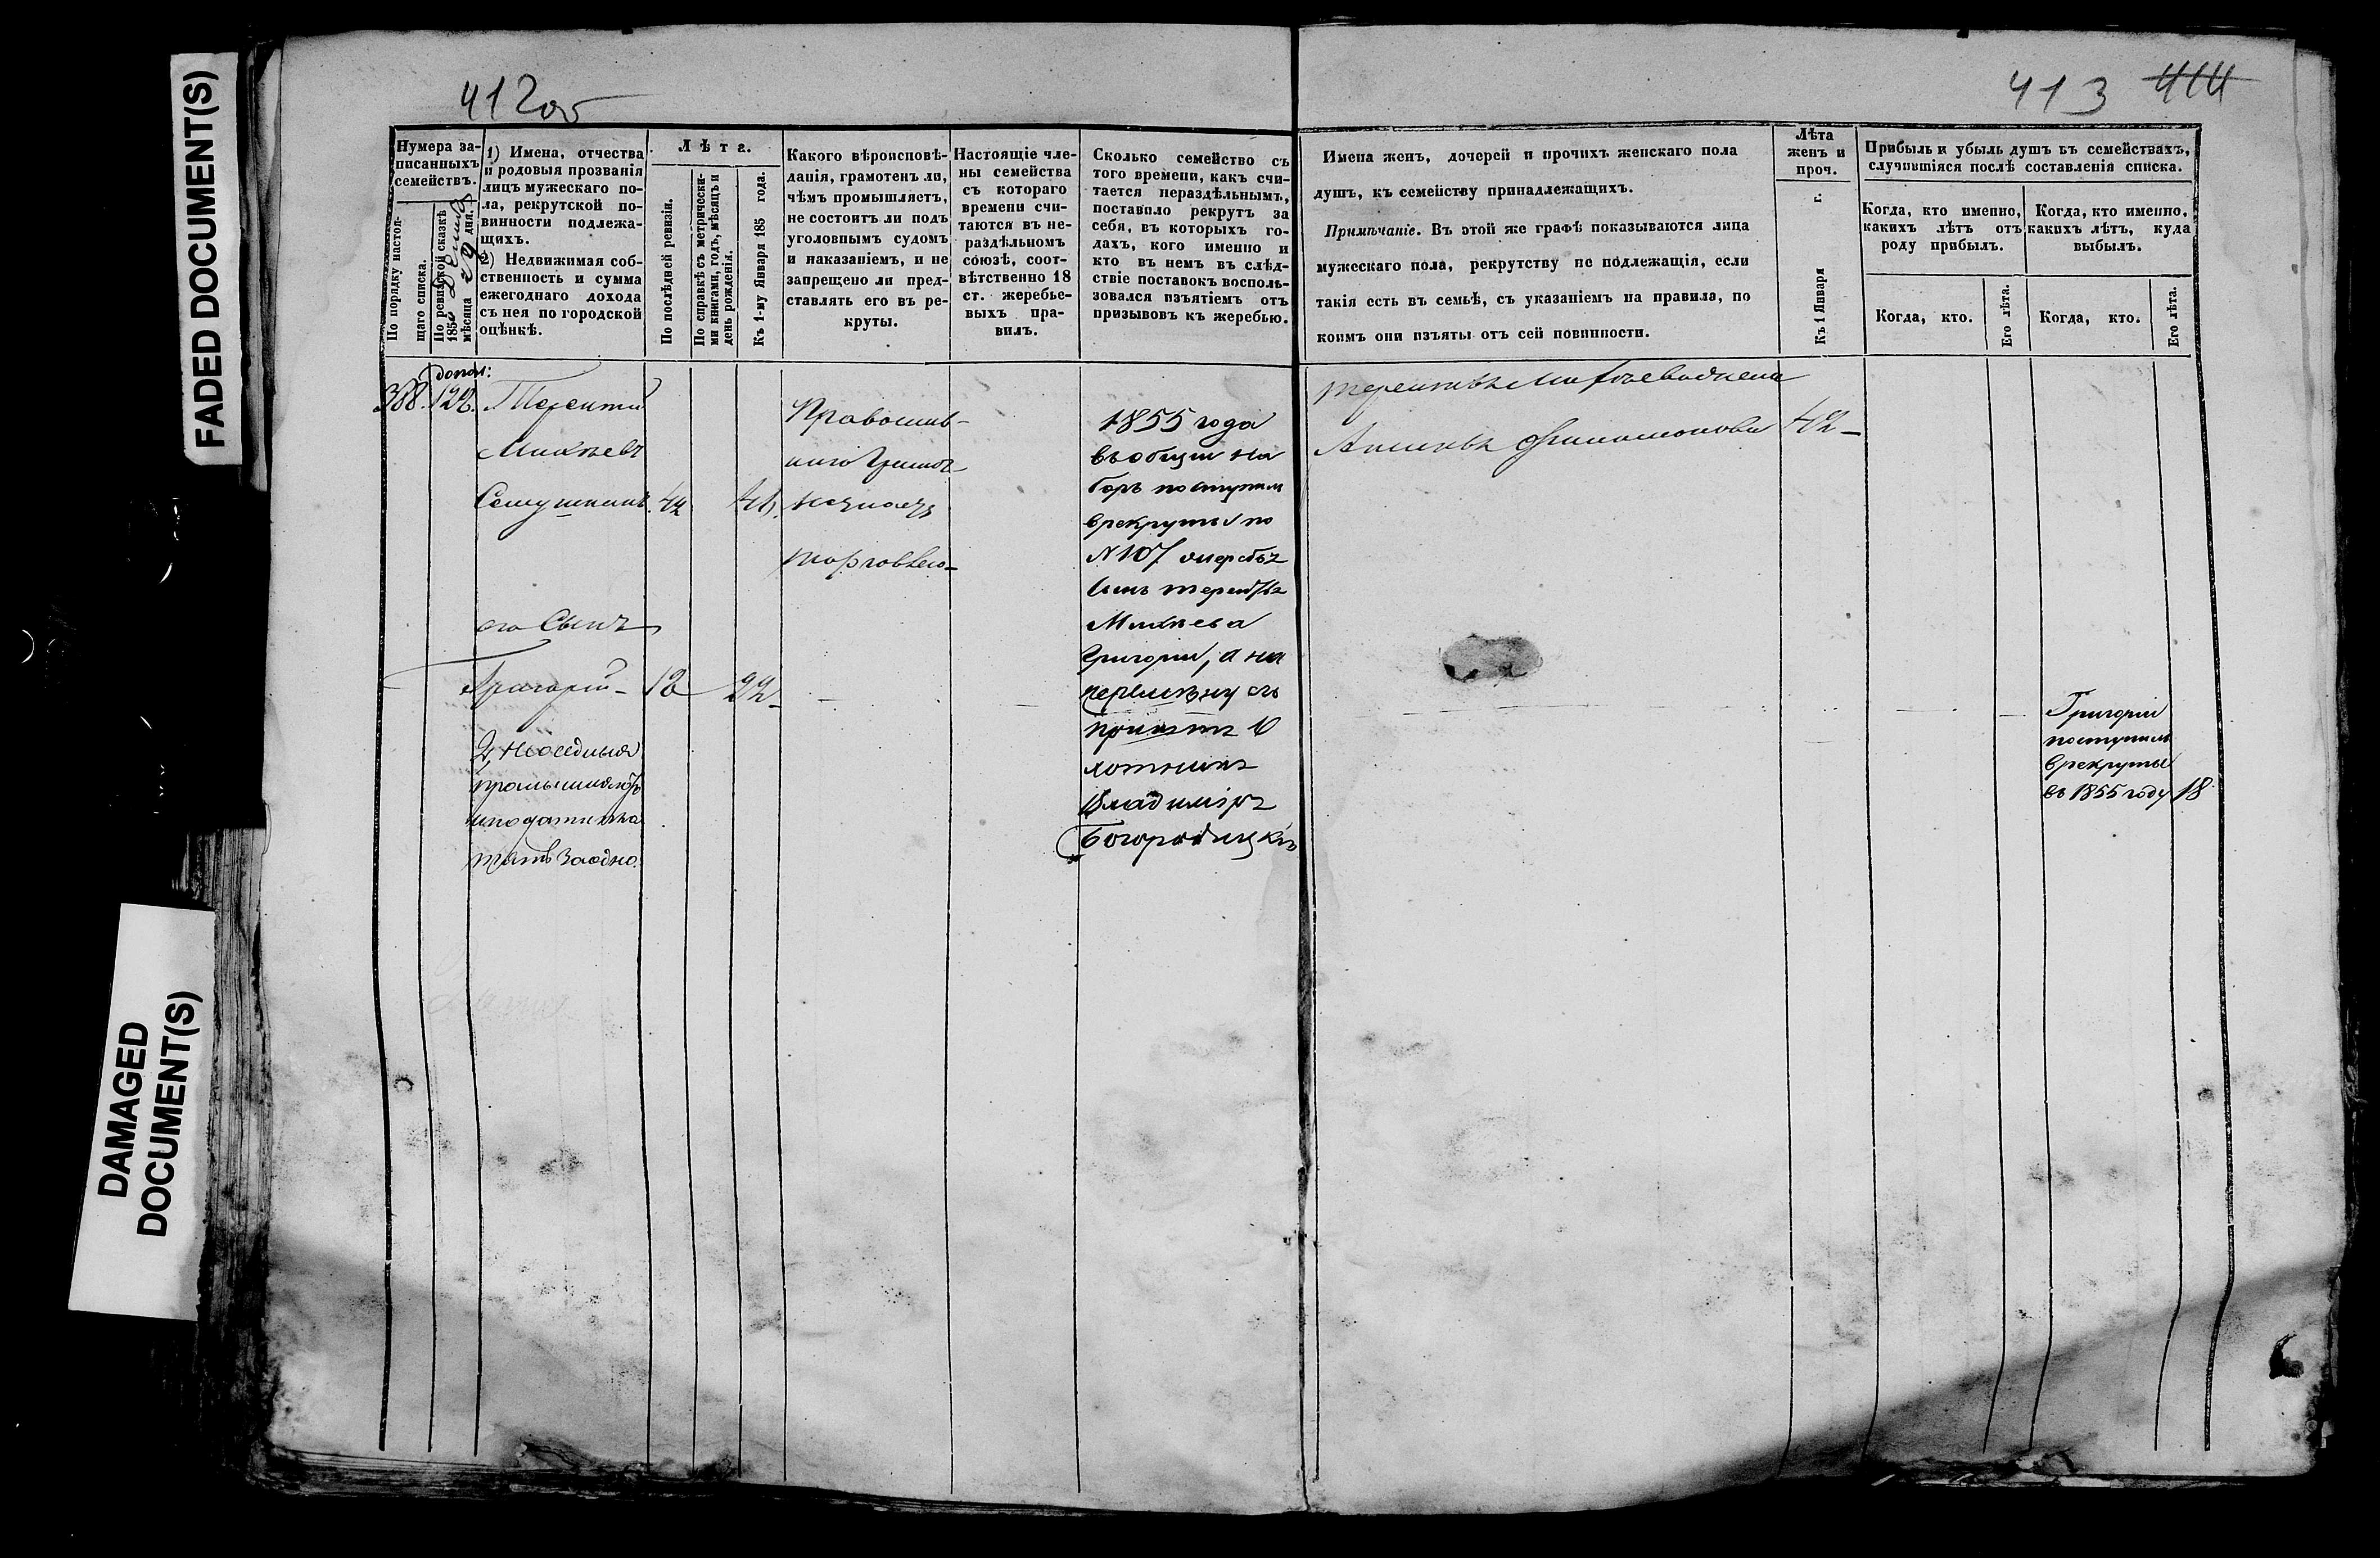 FADED DOCUMENT(S)
DAMAGED
DOCUMENT(S)
412об
Нумера за-
писанныхъ
семействъ.
По порядку настоя-
щаго списка.
По ревизской сказкѣ
185
мѣсяца дня.
1) Имена, отчества
и родовыя прозванія
лицъ мужескаго по-
ла, рекрутской по-
винности подлежа-
щихъ.
2) Недвижимая соб-
ственность и сумма
ежегоднаго дохода
съ нея по городской
оцѣнкѣ.
Лѣта.
По послѣдней ревизіи.
По справкѣ съ метрически-
ми книгами, годъ, мѣсяцъ и
день рожденія.
Къ 1-му Января 185 года.
Какого вѣроисповѣ-
данія, грамотенъ ли,
чѣмъ промышляетъ,
не состоитъ ли подъ
уголовнымъ судомъ
и наказаніемъ, и не
запрещено ли пред-
ставлять его въ ре-
круты.
Настоящіе чле-
ны семейства
съ котораго
времени счи-
таются въ не-
раздѣльномъ
союзѣ, соот-
вѣтственно 18
ст. жеребье-
выхъ пра-
вилъ.
Сколько семейство съ
того времени, какъ счи-
тается нераздѣльнымъ,
поставило рекрутъ за
себя, въ которыхъ го-
дахъ, кого именно и
кто въ немъ въ слѣд-
ствіе поставокъ восполь-
зовался изъятіемъ отъ
призывовъ къ жеребью.
допол:
388. 122.
Терентій
Михѣевъ
Семушкинъ. 44
его Сынъ
Григорій - 12 22
2, Неоседлыя
заодно.
Православ-
торговлею
1855 года
въ общій на
боръ поступилъ
врекруты по
N 107 очереди
сынъ Терентья
Михѣева
Григорій, а на
перемѣну его
принятъ О
хотникъ
Владиміръ
Богородицкій
413 414
Имена женъ, дочерей и прочихъ женскаго пола
душъ, къ семейству принадлежащихъ.
Примѣчаніе. Въ этой же графѣ показываются лица
мужескаго пола, рекрутству не подлежащія, если
такія есть въ семьѣ, съ указаніемъ на правила, по
коимъ они изъяты отъ сей повинности.
Лѣта
женъ и
проч.
Къ 1 Января г.
Прибыль и убыль душъ въ семействахъ,
случившіяся послѣ составленія списка.
Когда, кто именно,
какихъ лѣтъ отъ
роду прибылъ.
Когда, кто именно,
какихъ лѣтъ, куда
выбылъ.
Когда, кто.
Его лѣта.
Когда, кто.
Его лѣта.
Терентья Михѣева жена
42
Григорій
поступилъ
врекруты
въ 1855 году 18